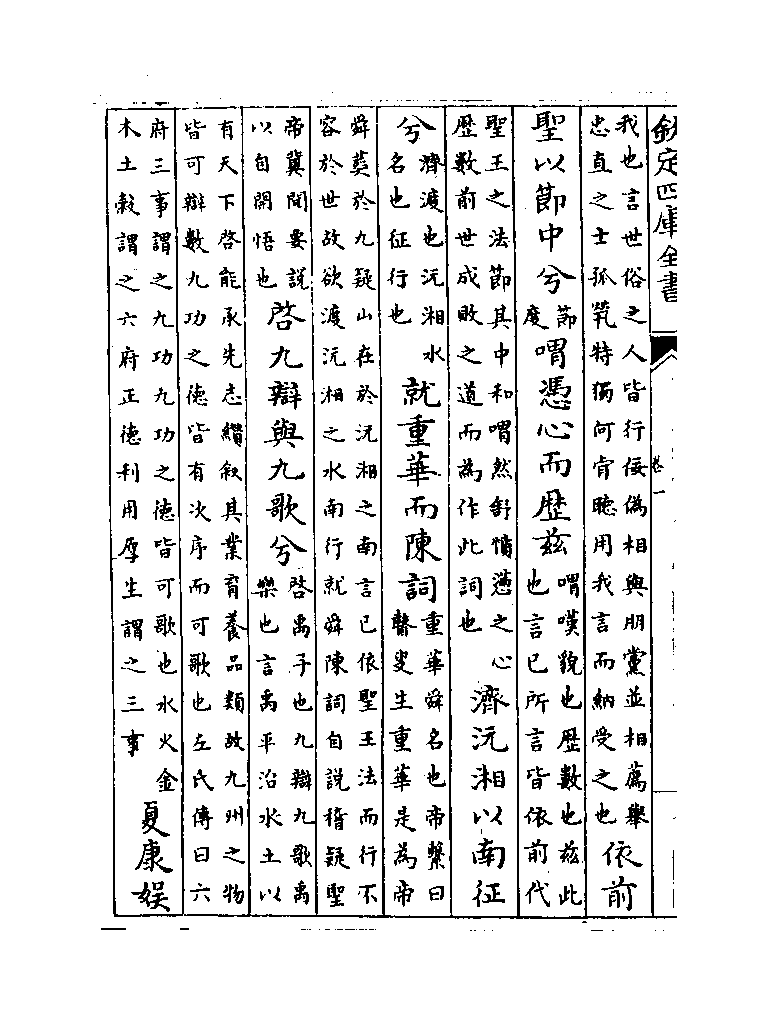 欽定四庫全書
卷一
我也言世俗之人皆行佞偽相與朋黨並相薦舉
忠直之士孤煢特獨何肯聽用我言而納受之也
依前
聖以節中兮
節
度
喟憑心而歷茲
喟嘆貌也歷數也茲此
也言己所言皆依前代
聖王之法節其中和喟然舒憤懣之心
歷數前世成敗之道而為作此詞也
濟沅湘以南征
兮
濟渡也沅湘水
名也征行也
就重華而陳詞
重華舜名也帝繫曰
瞽叟生重華是為帝
舜葬於九疑山在於沅湘之南言己依聖王法而行不
容於世故欲渡沅湘之水南行就舜陳詞自說稽疑聖
帝冀聞要說
以自開悟也
啓九辯與九歌兮
啓禹子也九辯九歌禹
樂也言禹平治水土以
有天下啓能承先志纘叙其業育養品類故九州之物
皆可辯數九功之德皆有次序而可歌也左氏傳曰六
府三事謂之九功九功之德皆可歌也水火金
木土穀謂之六府正德利用厚生謂之三事
夏康娛